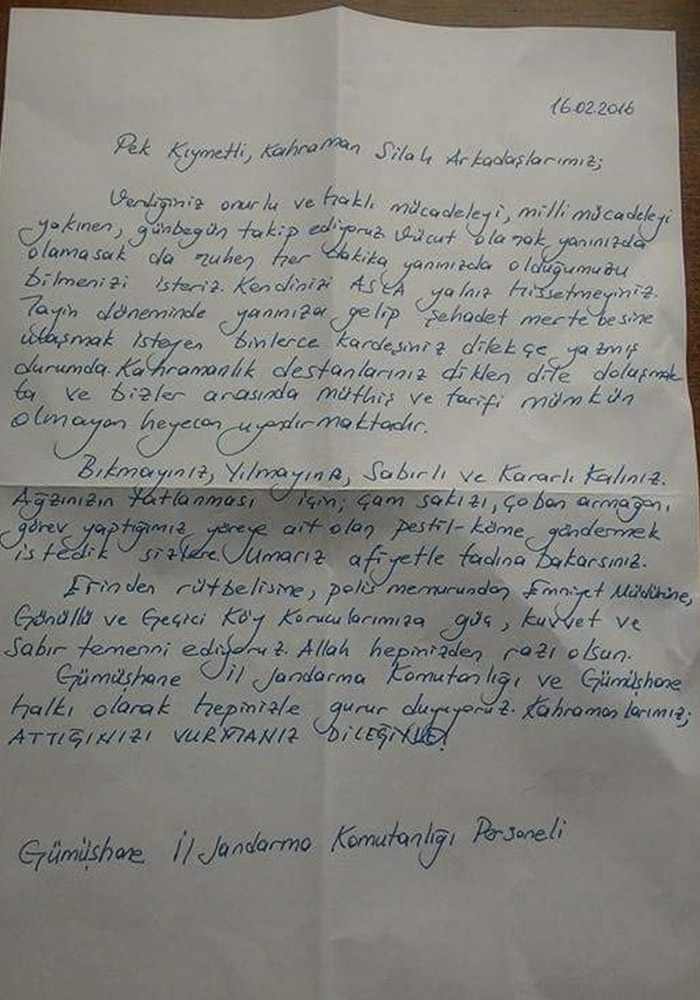 16.02.2016
Pek Kıymetli, Kahraman Silah Arkadaşlarımız;
Verdiğiniz onurlu ve haklı mücadeleyi, milli mücadeleyi
yakınen, günbegün takip ediyoruz. Vücut olarak yanınızda
olamasak da ruhen her dakika yanınızda olduğumuzu
bilmenizi isteriz. Kendinizi ASLA yalnız hissetmeyiniz.
Tayin döneminde yanınıza gelip şehadet mertebesine
ulaşmak isteyen binlerce kardeşiniz dilekçe yazmış
durumda. Kahramanlık destanlarınız dilden dile dolaşmak-
ta ve bizler arasında müthiş ve tarifi mümkün
olmayan heyecan uyandırmaktadır.
Bıkmayınız, Yılmayınız, Sabırlı ve Kararlı Kalınız.
Ağzınızın tatlanması için; çam sakızı, çoban armağanı,
görev yaptığımız yöreye ait olan pestil-köme göndermek
istedik sizlere. Umarız afiyetle tadına bakarsınız.
Erinden rütbelisine, polis memurundan Emniyet Müdürüne,
Gönüllü ve Geçici Köy Korucularımıza güç, kuvvet ve
Sabır temenni ediyoruz. Allah hepinizden razı olsun.
Gümüşhane İl Jandarma Komutanlığı ve Gümüşhane
halkı olarak hepinizle gurur duyuyoruz. Kahramanlarımız;
ATTIĞINIZI VURMANIZ DİLEĞİYLE!
Gümüşhane İl Jandarma Komutanlığı Personeli